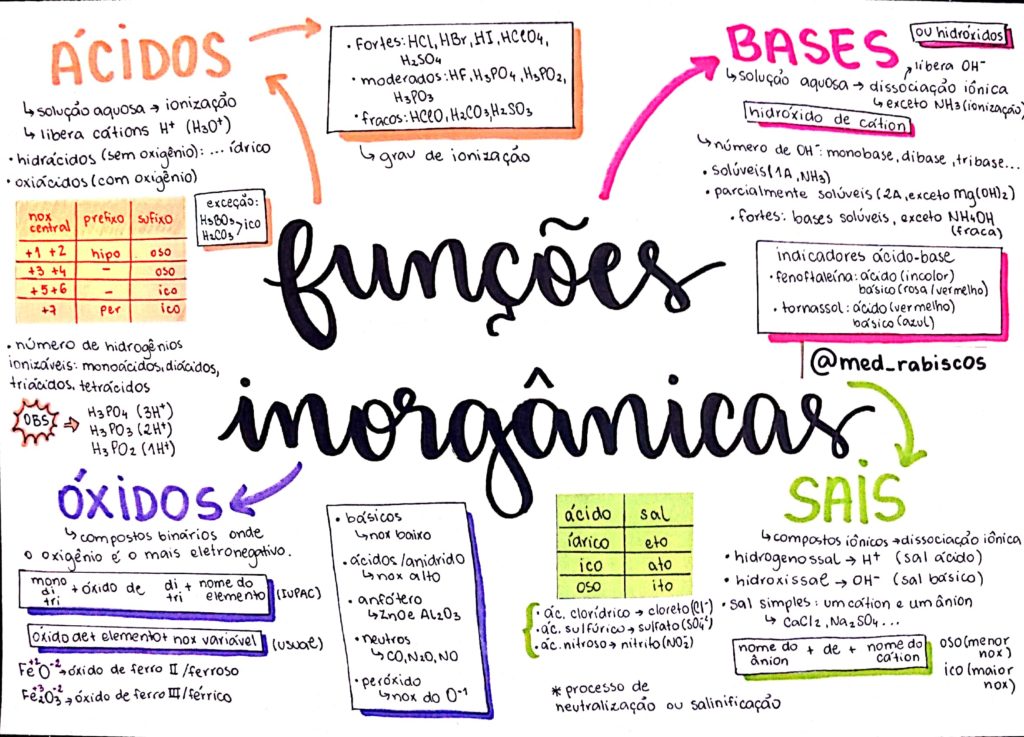 ÁCIDOS
↳ solução aquosa → ionização
↳ libera cátions H⁺ (H₃O⁺)
• hidrácidos (sem oxigênio): ... ídrico
• oxiácidos (com oxigênio)
nox central | prefixo | sufixo
+1 +2 | hipo | oso
+3 +4 | – | oso
+5 +6 | – | ico
+7 | per | ico
exceção:
H₃BO₃
H₂CO₃ > ico
• número de hidrogênios
ionizáveis: monoácidos, diácidos,
triácidos, tetrácidos
OBS ⇒ H₃PO₄ (3H⁺)
H₃PO₃ (2H⁺)
H₃PO₂ (1H⁺)
• fortes: HCl, HBr, HI, HClO₄,
H₂SO₄
• moderados: HF, H₃PO₄, H₃PO₂,
H₃PO₃
• fracos: HClO, H₂CO₃, H₂SO₃
↳ grau de ionização
BASES
ou hidróxidos
libera OH⁻
↳ solução aquosa → dissociação iônica
↳ exceto NH₃ (ionização)
hidróxido de cátion
↳ número de OH⁻: monobase, dibase, tribase...
• solúveis (1A, NH₃)
• parcialmente solúveis (2A, exceto Mg(OH)₂)
• fortes: bases solúveis, exceto NH₄OH
(fraca)
indicadores ácido-base
• fenoftaleína: ácido (incolor)
básico (rosa/vermelho)
• tornassol: ácido (vermelho)
básico (azul)
@med_rabiscos
funções
inorgânicas
ÓXIDOS
↳ compostos binários onde
o oxigênio é o mais eletronegativo.
mono di tri + óxido de di tri + nome do elemento (IUPAC)
óxido de + elemento + nox variável (usual)
Fe⁺²O⁻² → óxido de ferro II / ferroso
Fe₂⁺³O₃⁻² → óxido de ferro III / férrico
• básicos
↳ nox baixo
• ácidos/anidrido
↳ nox alto
• anfótero
↳ ZnO e Al₂O₃
• neutros
↳ CO, N₂O, NO
• peróxido
↳ nox do O⁻¹
SAIS
↳ compostos iônicos → dissociação iônica
• hidrogenossal → H⁺ (sal ácido)
• hidroxissal → OH⁻ (sal básico)
• sal simples: um cátion e um ânion
↳ CaCl₂, Na₂SO₄...
nome do ânion + de + nome do cátion
oso (menor nox)
ico (maior nox)
ácido | sal
ídrico | eto
ico | ato
oso | ito
• ác. clorídrico → cloreto (Cl⁻)
• ác. sulfúrico → sulfato (SO₄⁻²)
• ác. nitroso → nitrito (NO₂⁻)
* processo de
neutralização ou salinificação